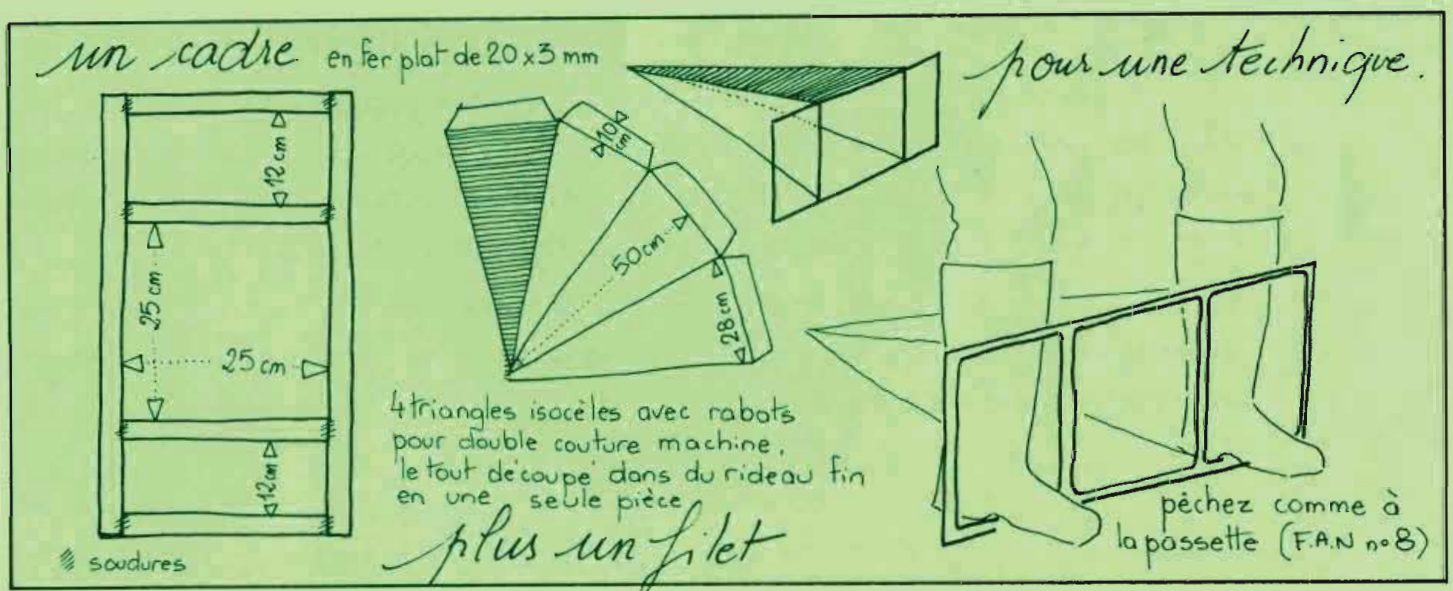 un cadre en fer plat de 20 x 3 mm
pour une technique.
12 cm
25 cm
25 cm
12 cm
soudures
10 cm
50 cm
28 cm
4 triangles isocèles avec rabats
pour double couture machine,
le tout découpé dans du rideau fin
en une seule pièce
plus un filet
pèchez comme à
la passette (F.A.N n° 8)